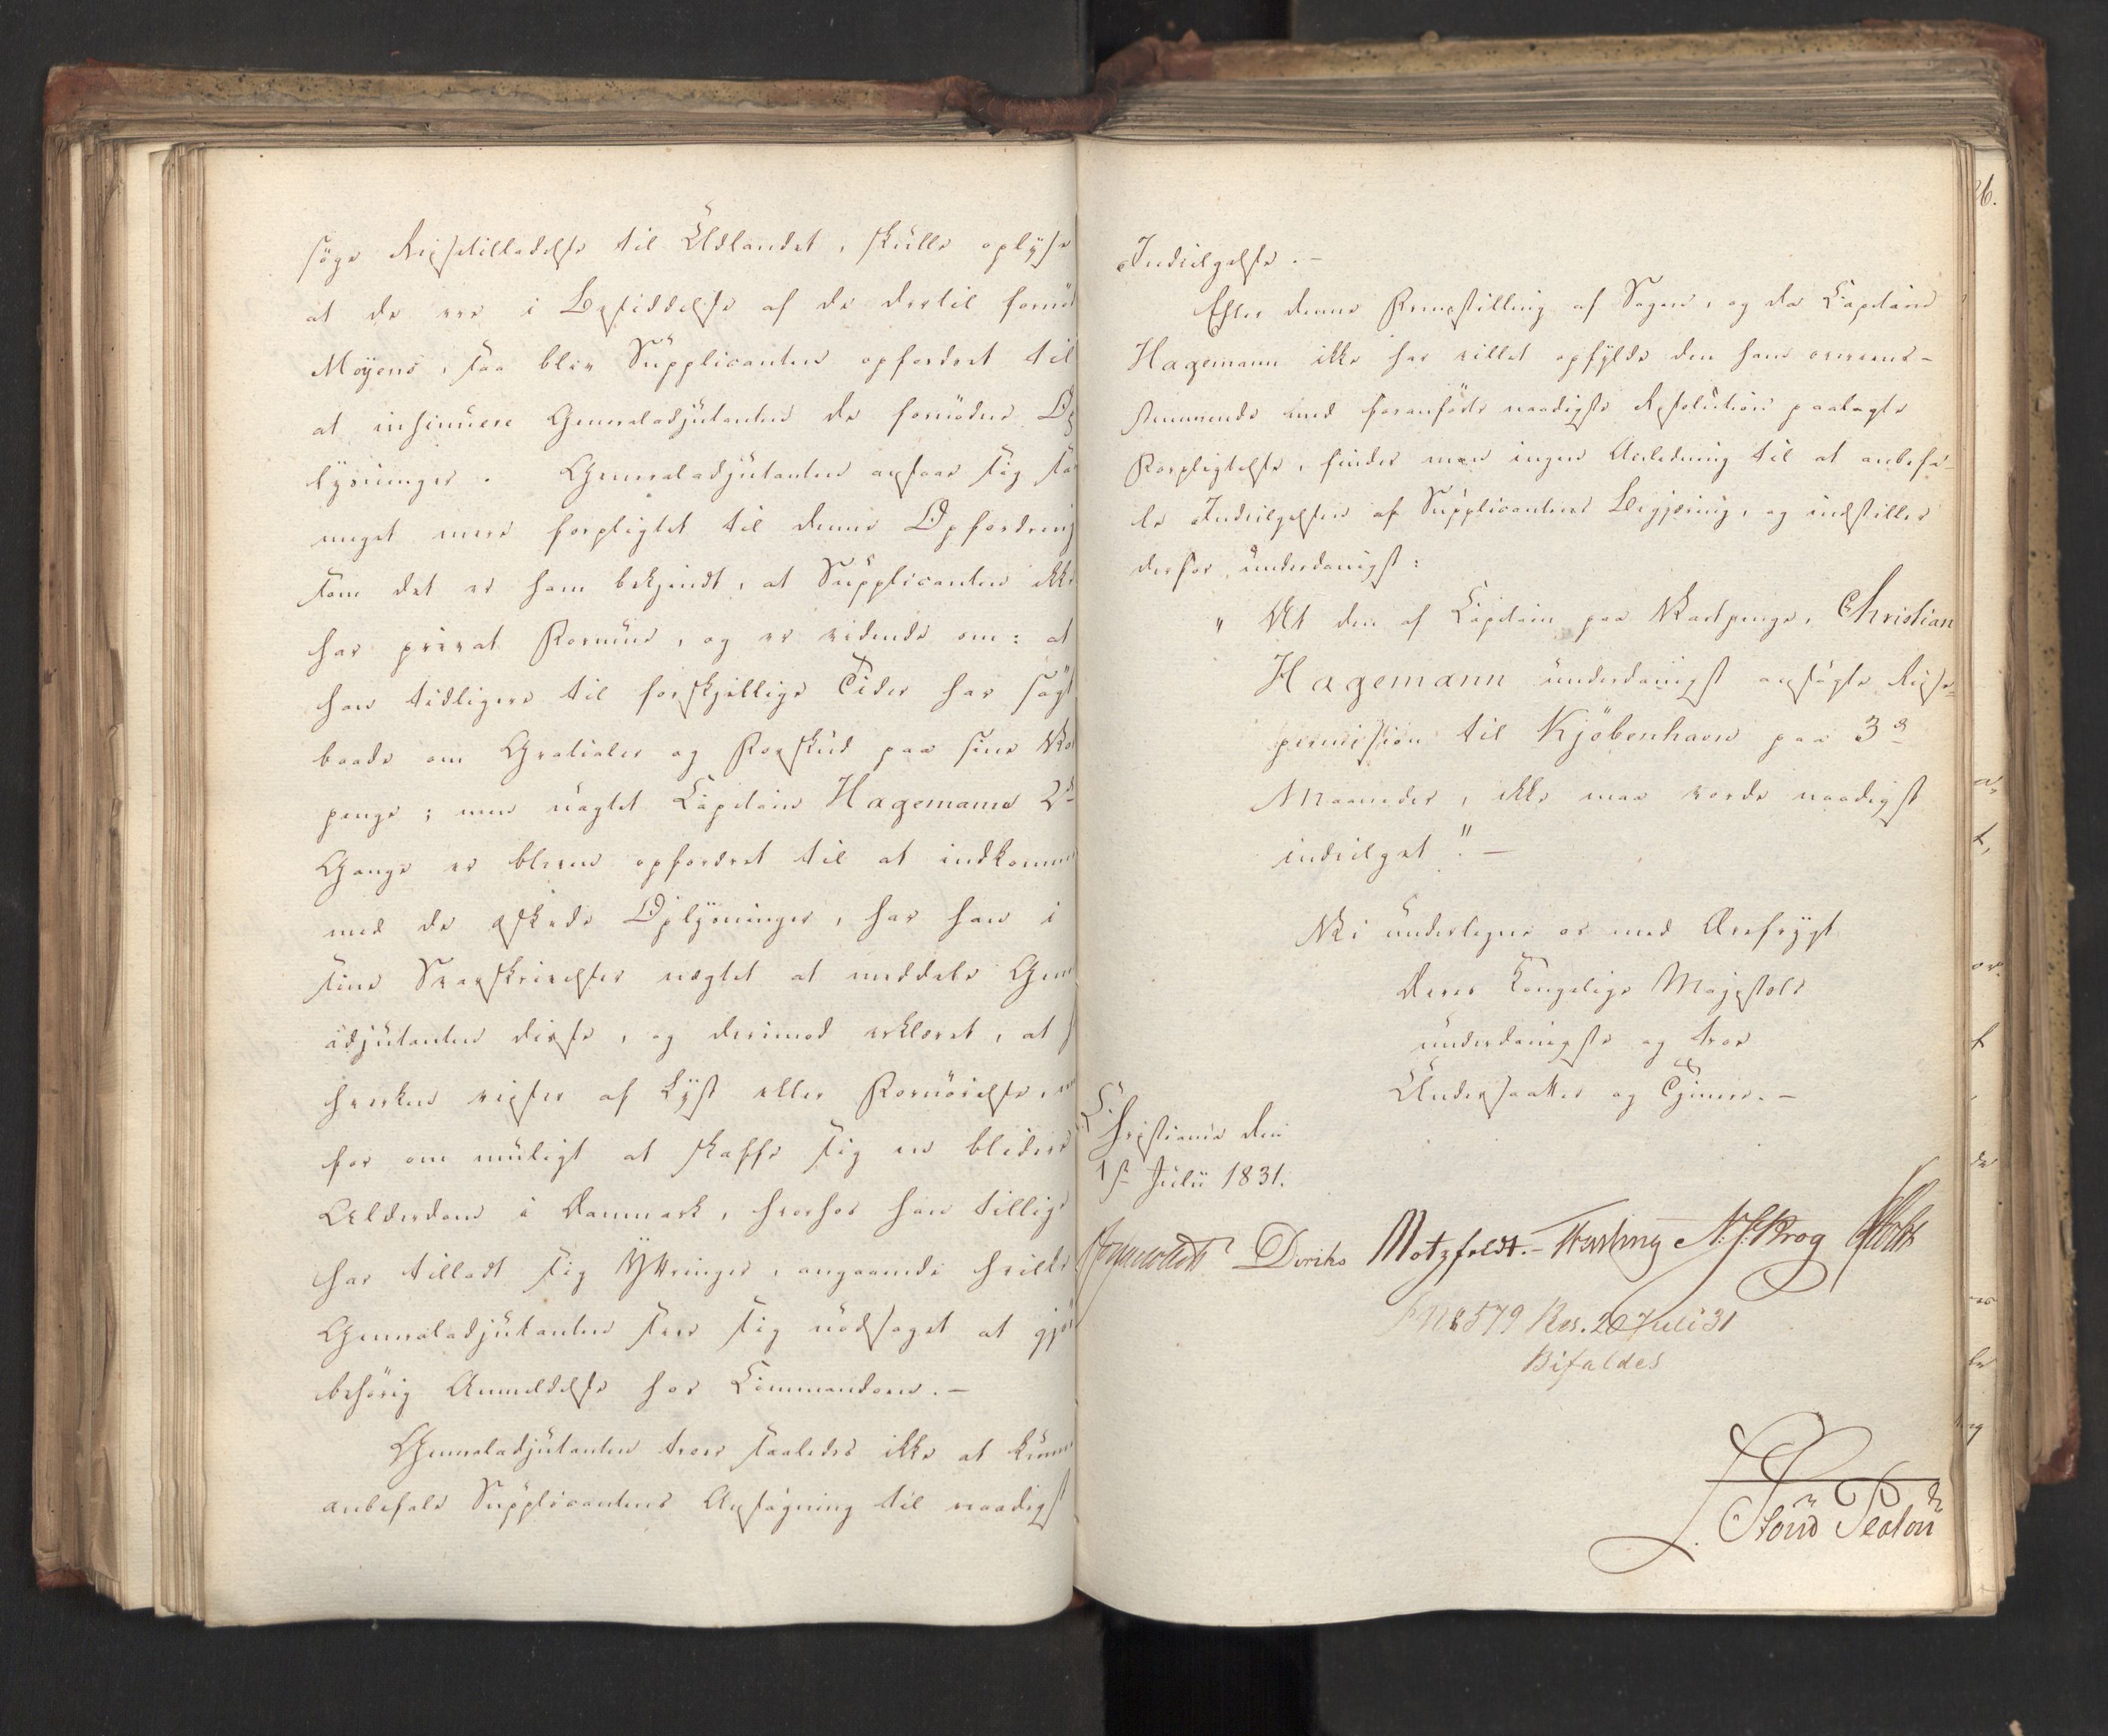 søge Reisetilladelse til Udlandet, skulle oplyse
at de ere i Besiddelse af de dertil fornød
Moyens, saa blev Supplicanten opfordret til
at insinuere Generaladjutanten de fornødne Op
lysninger. Generaladjutanten ansaae sig saa
meget mere forpligtet til denne Opfordring
som det er ham bekjendt, at Supplicanten ikke
har privat Formue, og er vidende om: at
han tidligere til forskjellige Tider har søgt
baade om Gratialer og Forskud paa sine Vart
penge; men uagtet Capitain Hagemann 2de
Gange er bleven opfordret til at indkomme
med de æskede Oplysninger, har han i
sine Svarskrivelser nægtet at meddele Gene
adjutanten disse, og derimod erklæret, at h
hverken reiser af Lyst eller Fornöielse, m
for om muligt at skaffe sig en blidere
Alderdom i Danmark, hvorhos han tillige
har tilladt sig Yttringer, angaaende hvilke
Generaladjutanten seer sig nødsaget at gjør
behørig Anmeldelse hos Commandoen. –
Generaladjutanten troer saaledes ikke at kunne
anbefale Supplicantens Ansøgning til naadigst
Indvilgelse. –
Efter denne Fremstilling af Sagen, og da Capitain
Hagemann ikke har villet opfylde den ham overeens-
stemmende med foranførte naadigste Resolution paalagte
Forpligtelse, finder man ingen Anledning til at anbefa-
le Indvilgelsen af Supplicantens Begjæring, og indstiller
derfor underdanigst:
"At den af Capitain paa Vartpenge, Christian
Hagemann underdanigst ansøgte Reise-
permission til Kjöbenhavn paa 3de
Maaneder, ikke maa vorde naadigst
indvilget". –
Vi undertegne os med Ærefrygt
Deres Kongelige Majestæts
underdanigste og troe
Undersaatter og Tjenere. –
Christiania den
1ste Julii 1831.
Diriks Motzfeldt. N. J. Krog
579 Res. 20 Juli 31
Bifaldes